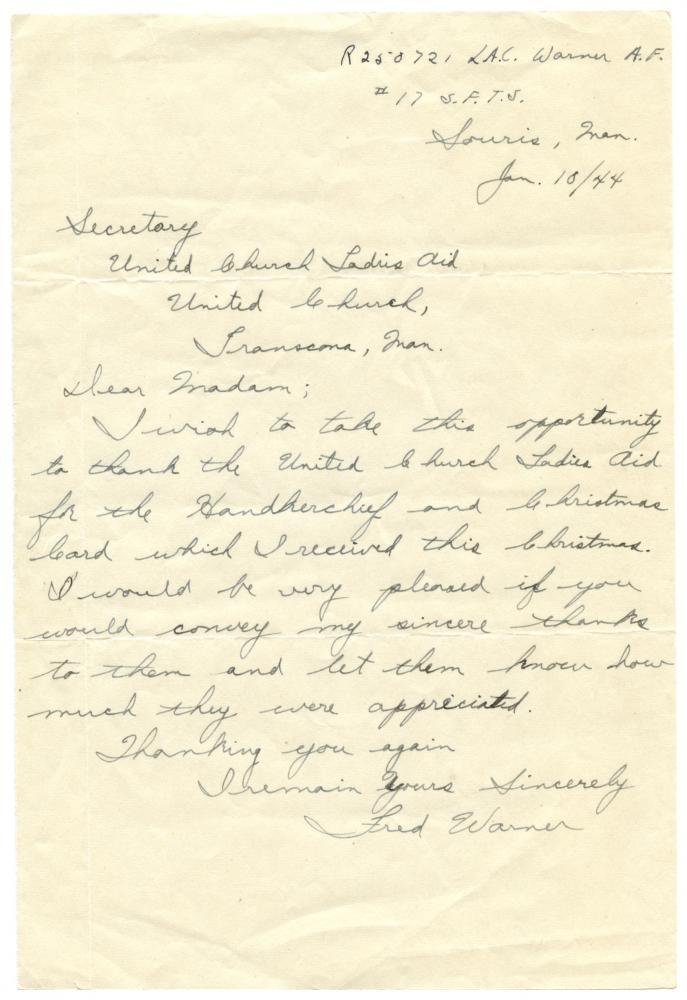 R250721 L.A.C. Warner A.F.
#17 S.F.T.S.
Souris, Man.
Jan. 10/44
Secretary
United Church Ladies Aid
United Church,
Transcona, Man.
Dear Madam;
I wish to take this opportunity
to thank the United Church Ladies Aid
for the Handkerchief and Christmas
Card which I received this Christmas.
I would be very pleased if you
would convey my sincere thanks
to them and let them know how
much they were appreciated.
Thanking you again
I remain Yours Sincerely
Fred Warner